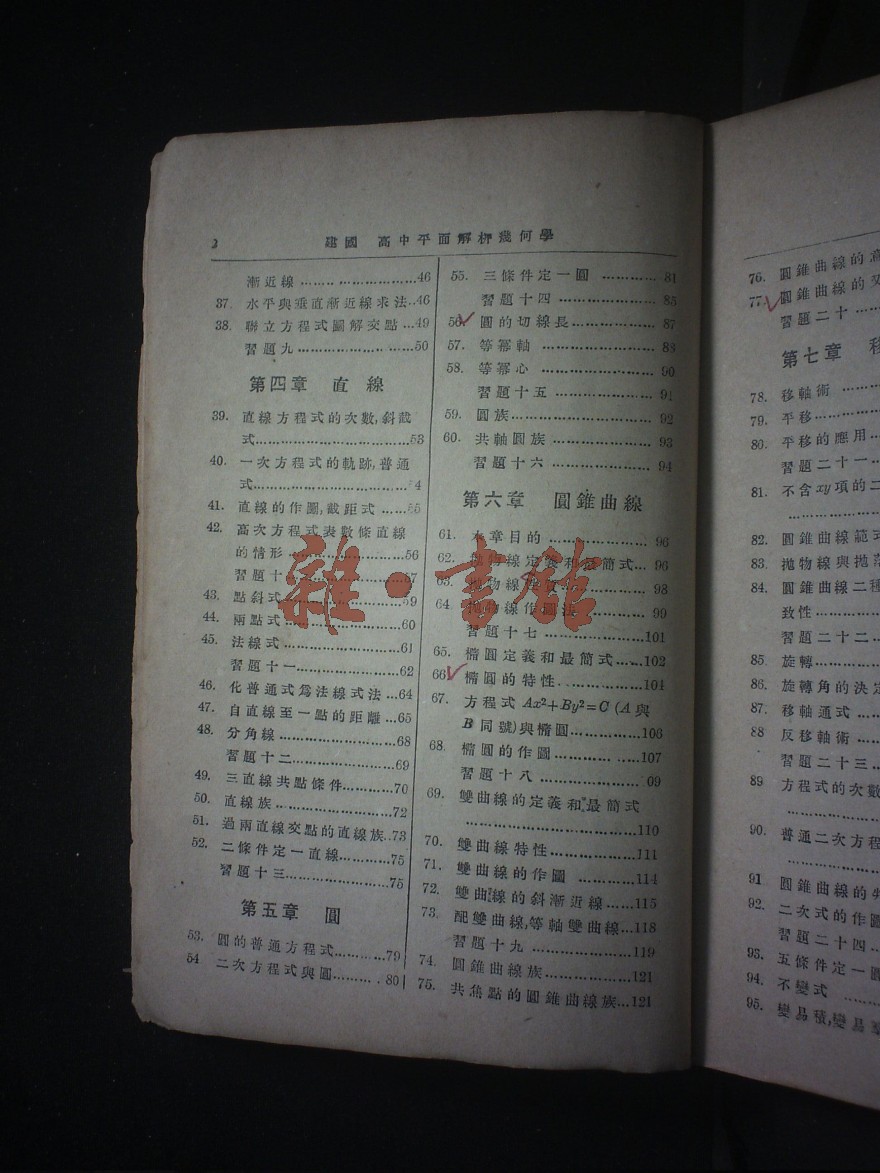 2
建國 高中平面解析幾何學
漸近線……………………46
37. 水平與垂直漸近線求法..46
38. 聯立方程式圖解交點…49
習題九……………………50
第四章 直線
39. 直線方程式的次數,斜截
式……………………53
40. 一次方程式的軌跡,普通
式……………………4
41. 直線的作圖,截距式……55
42. 高次方程式表數條直線
的情形……………………56
習題十……………………57
43. 點斜式……………………59
44. 兩點式……………………60
45. 法線式……………………61
習題十一……………………62
46. 化普通式爲法線式法…64
47. 自直線至一點的距離…65
48. 分角線……………………68
習題十二……………………69
49. 三直線共點條件…………70
50. 直線族……………………72
51. 過兩直線交點的直線族..73
52. 二條件定一直線…………75
習題十三……………………75
第五章 圓
53. 圓的普通方程式…………79
54 二次方程式與圓…………80
55. 三條件定一圓…………81
習題十四……………………85
56. 圓的切線長……………87
57. 等冪軸……………………88
58. 等冪心……………………90
習題十五……………………91
59. 圓族……………………92
60. 共軸圓族……………………93
習題十六……………………94
第六章 圓錐曲線
61. 本章目的……………………96
62. 拋物線定義和最簡式…96
63. 拋物線特性……………98
64. 拋物線作圖法…………99
習題十七……………………101
65. 橢圓定義和最簡式……102
66. 橢圓的特性……………104
67. 方程式 Ax²+By²=C (A與
B同號)與橢圓……………106
68. 橢圓的作圖……………107
習題十八……………………09
69. 雙曲線的定義和最簡式
……………………110
70. 雙曲線特性……………111
71. 雙曲線的作圖…………114
72. 雙曲線的斜漸近線……115
73. 配雙曲線,等軸雙曲線…118
習題十九……………………119
74. 圓錐曲線族……………121
75. 共焦點的圓錐曲線族…121
76. 圓錐曲線的
77. 圓錐曲線的
習題二十……
第七章
78. 移軸術……
79. 平移……
80. 平移的應用…
習題二十一…
81. 不含xy項的二
……………………
82. 圓錐曲線範式
83. 拋物線與拋
84. 圓錐曲線二種
致性……
習題二十二…
85. 旋轉……
86. 旋轉角的決定
87. 移軸通式…
88 反移軸術…
習題二十三…
89 方程式的次數
……………………
90. 普通二次方程
……………………
91 圓錐曲線的
92. 二次式的作圖
習題二十四…
93. 五條件定一圓
94. 不變式……
95. 變易積,變易
雜·書館